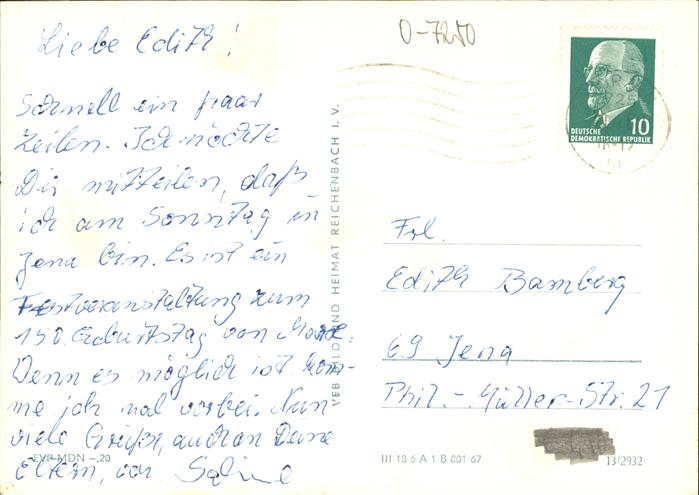 Liebe Edith!
Schnell ein paar
Zeilen. Ich möchte
Dir mitteilen, daß
ich am Sonntag in
Jena bin. Es ist ein
Festveranstaltung zum
150. Geburtstag von Marx.
Wenn es möglich ist kom-
me ich mal vorbei. Nun
viele Grüße, auch an Deine
Eltern, von Sabine
EVP MDN -,20
VEB BILD UND HEIMAT REICHENBACH I. V.
0-7250
DEUTSCHE
DEMOKRATISCHE REPUBLIK
10
Frl.
Edith Bamberg
69 Jena
Phil.-Müller-Str. 21
III 18 6 A 1 B 001 67
13/2932